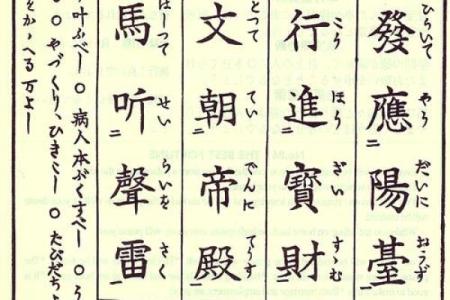 ひらいて やう だいに おうず
發應二陽臺一
こう ほう ざい すゝむ
行進二寶財一
とつて てい でんに
文朝二帝殿一
はしつて せい らいを さく
馬听二聲雷一
叶ふべし〇病人本ぶくすべし〇う
〇やづくり、ひきこし〇たびだちよ
かゝへる万よし